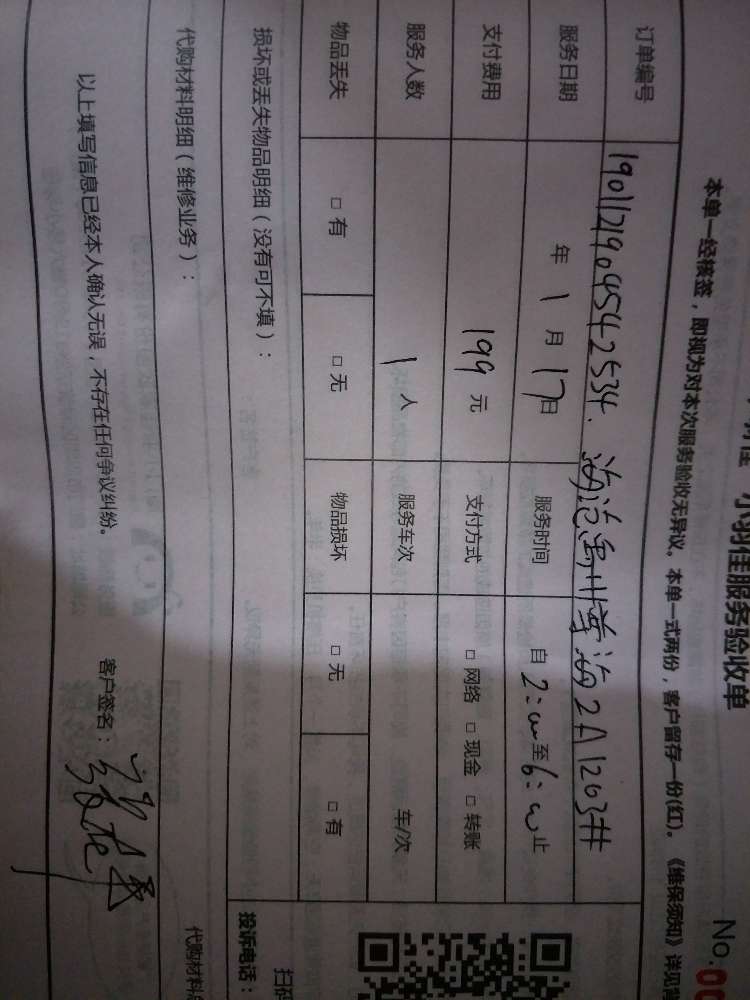 小羽佳服务验收单
No.
本单一经接签，即视为对本次服务验收无异议。本单一式两份，客户留存一份(红)。《维保须知》详见背
订单编号 1901171904542534. 海沧禹州尊海2A1203#
服务日期 年 1 月 17 日 服务时间 自 2:00 至 6:00 止
支付费用 199 元 支付方式 □ 网络 □ 现金 □ 转账
服务人数 1 人 服务车次 车/次
物品丢失 □ 有 □ 无 物品损坏 □ 无 □ 有
损坏或丢失物品明细（没有可不填）：
代购材料明细（维修业务）：
以上填写信息已经本人确认无误，不存在任何争议纠纷。 客户签名：
扫码
投诉电话：
代购材料